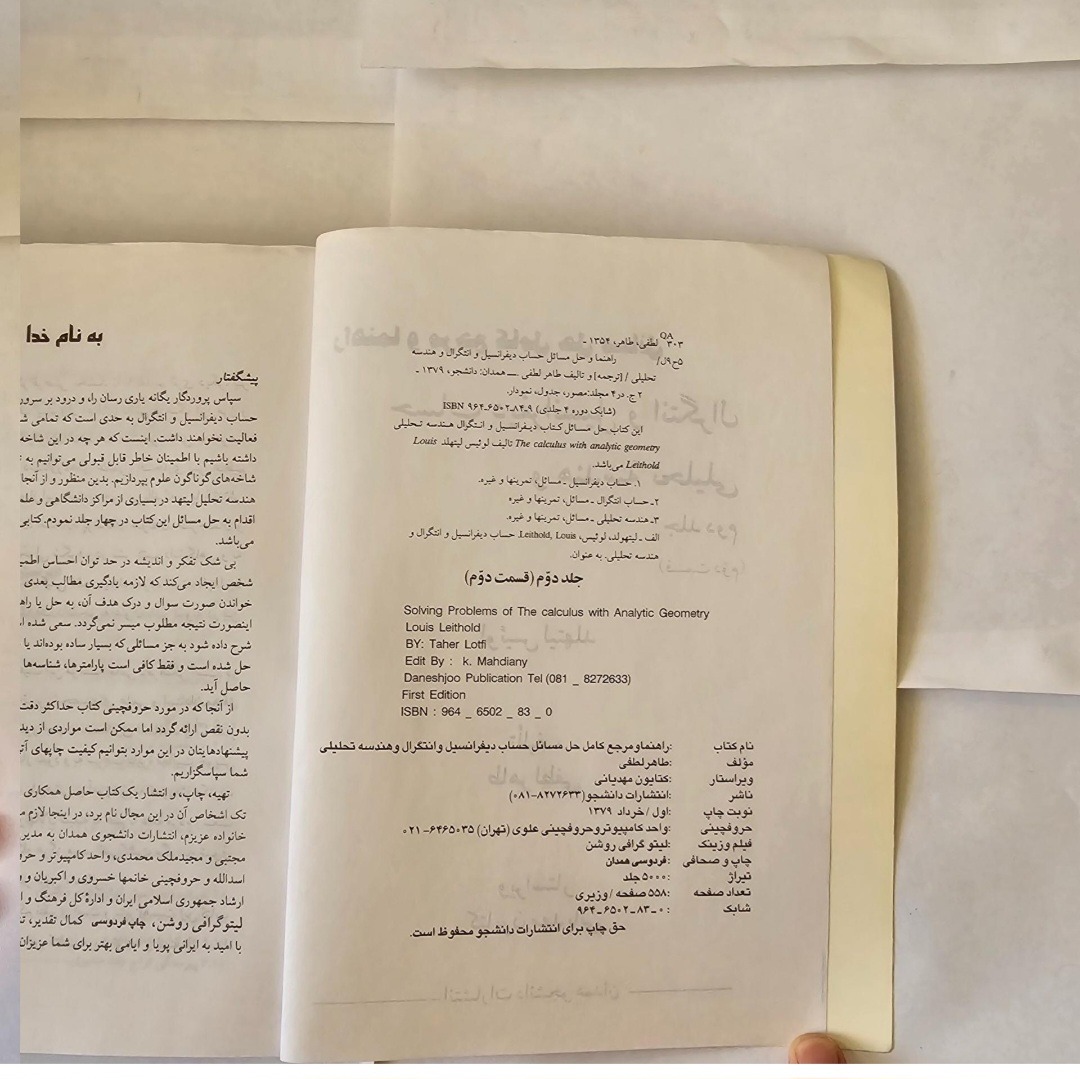 QA
۳۰۳ لطفی، طاهر، ۱۳۵۴ ـ
۵ح۹ل/ راهنما و حل مسائل حساب دیفرانسیل و انتگرال و هندسه
تحلیلی / [ترجمه] و تالیف طاهر لطفی .ـــ همدان: دانشجو، ۱۳۷۹ ـ
۲ ج. در۴ مجلد:مصور، جدول، نمودار.
ISBN ۹۶۴-۶۵۰۲-۸۴-۹ (شابک دوره ۴ جلدی)
این کتاب حل مسائل کتاب دیفرانسیل و انتگرال هندسه تحلیلی
The calculus with analytic geometry تالیف لوئیس لیتهلد Louis
Leithold می‌باشد.
۱. حساب دیفرانسیل ـ مسائل، تمرینها و غیره.
۲ـ حساب انتگرال ـ مسائل، تمرینها و غیره
۳ـ هندسه تحلیلی ـ مسائل، تمرینها و غیره.
الف ـ لیتهولد، لوئیس، Leithold, Louis. حساب دیفرانسیل و انتگرال و
هندسه تحلیلی. به عنوان.
جلد دوّم (قسمت دوّم)
Solving Problems of The calculus with Analytic Geometry
Louis Leithold
BY: Taher Lotfi
Edit By : k. Mahdiany
Daneshjoo Publication Tel (081 _ 8272633)
First Edition
ISBN : 964 _ 6502 _ 83 _ 0
نام کتاب :راهنما و مرجع کامل حل مسائل حساب دیفرانسیل و انتگرال و هندسه تحلیلی
مؤلف :طاهر لطفی
ویراستار :کتایون مهدیانی
ناشر :انتشارات دانشجو(۸۲۷۲۶۳۳-۰۸۱)
نوبت چاپ :اول / خرداد ۱۳۷۹
حروفچینی :واحد کامپیوتر و حروفچینی علوی (تهران) ۶۴۶۵۰۳۵-۰۲۱
فیلم و زینک :لیتو گرافی روشن
چاپ و صحافی :فردوسی همدان
تیراژ :۵۰۰۰ جلد
تعداد صفحه :۵۵۸ صفحه / وزیری
شابک :۰-۸۳-۶۵۰۲-۹۶۴
حق چاپ برای انتشارات دانشجو محفوظ است.
به نام خدا
پیشگفتار
سپاس پروردگار یگانه یاری رسان را، و درود بر سرور
حساب دیفرانسیل و انتگرال به حدی است که تمامی
فعالیت نخواهند داشت. اینست که هر چه در این شاخه
داشته باشیم با اطمینان خاطر قابل قبولی می‌توانیم به
شاخه‌های گوناگون علوم بپردازیم. بدین منظور و از آنجا
هندسه تحلیل لیتهد در بسیاری از مراکز دانشگاهی و
اقدام به حل مسائل این کتاب در چهار جلد نمودم. کتابی
می‌باشد.
بی شک تفکر و اندیشه در حد توان احساس
شخص ایجاد می‌کند که لازمه یادگیری مطالب بعدی
خواندن صورت سوال و درک هدف آن، به حل یا
اینصورت نتیجه مطلوب میسر نمی‌گردد. سعی شده
شرح داده شود به جز مسائلی که بسیار ساده بوده‌اند یا
حل شده است و فقط کافی است پارامترها، شناسه‌ها
حاصل آید.
از آنجا که در مورد حروفچینی کتاب حداکثر دقت
بدون نقص ارائه گردد اما ممکن است مواردی از دید
پیشنهادهایتان در این موارد بتوانیم کیفیت چاپهای
شما سپاسگزاریم.
تهیه، چاپ، و انتشار یک کتاب حاصل همکاری
تک اشخاص آن در این مجال نام برد، در اینجا لازم
خانواده عزیزم، انتشارات دانشجوی همدان به مدیر
مجتبی و مجیدملک محمدی، واحد کامپیوتر و
اسدالله و حروفچینی خانمها خسروی و اکبریان و
ارشاد جمهوری اسلامی ایران و ادارهٔ کل فرهنگ و
لیتوگرافی روشن، چاپ فردوسی کمال تقدیر،
با امید به ایرانی پویا و ایامی بهتر برای شما عزیزان